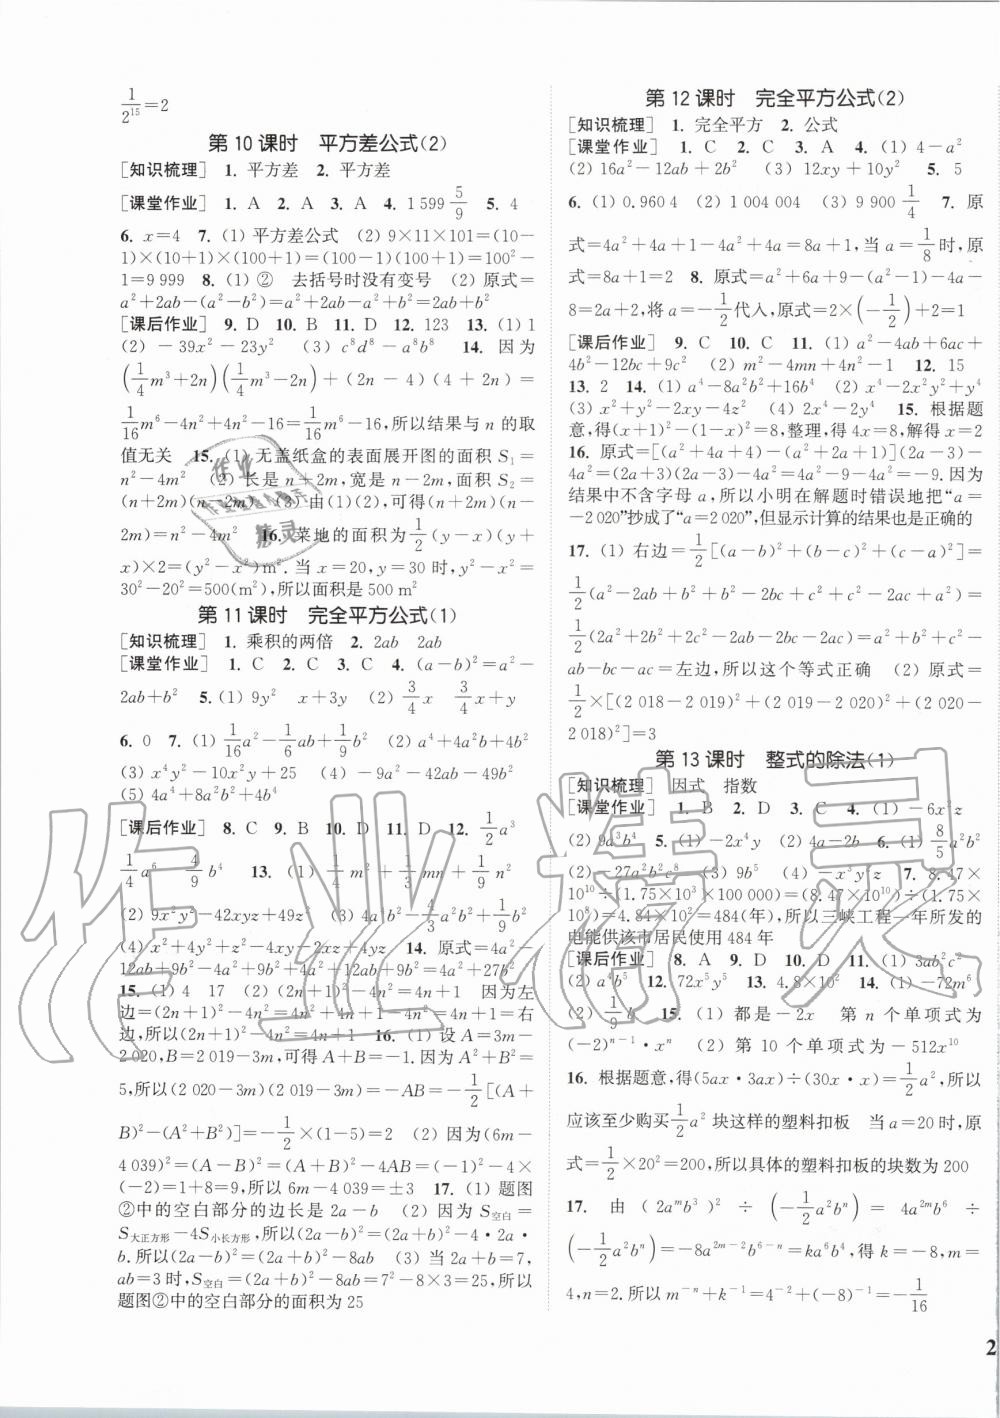 1/2¹⁵=2
第10课时　平方差公式(2)
[知识梳理]　1. 平方差　2. 平方差
[课堂作业]　1. A　2. A　3. A　4. 1 599 5/9　5. 4
6. x=4　7. (1) 平方差公式　(2) 9×11×101=(10-
1)×(10+1)×(100+1)=(100-1)(100+1)=100²-
1=9 999　8. (1) ②　去括号时没有变号　(2) 原式=
a²+2ab-(a²-b²)=a²+2ab-a²+b²=2ab+b²
[课后作业]　9. D　10. B　11. D　12. 123　13. (1) 1
(2) -39x²-23y²　(3) c⁸d⁸-a⁸b⁸　14. 因为
(1/4m³+2n)(1/4m³-2n)+(2n-4)(4+2n)=
1/16m⁶-4n²+4n²-16=1/16m⁶-16,所以结果与n的取
值无关　15. (1) 无盖纸盒的表面展开图的面积S₁=
n²-4m²　(2) 长是n+2m,宽是n-2m,面积S₂=
(n+2m)(n-2m)　(3) 由(1)(2),可得(n+2m)(n-
2m)=n²-4m²　16. 菜地的面积为1/2(y-x)(y+
x)×2=(y²-x²)m². 当x=20,y=30时,y²-x²=
30²-20²=500(m²),所以面积是500 m²
第11课时　完全平方公式(1)
[知识梳理]　1. 乘积的两倍　2. 2ab　2ab
[课堂作业]　1. C　2. C　3. C　4. (a-b)²=a²-
2ab+b²　5. (1) 9y²　x+3y　(2) 3/4x　3/4x+y
6. 0　7. (1) 1/16a²-1/6ab+1/9b²　(2) a⁴+4a²+4
(3) x⁴y²-10x²y+25　(4) -4a²-28ab-49b²
(5) 4a⁴+8a²b²+4b⁴
[课后作业]　8. C　9. B　10. D　11. D　12. 1/2a³
1/4a⁶　4/9b²　13. (1) 1/4m²+1/3mn+1/9n²
(2) 9x²y²-42xyz+49z²　(3) 4a²b²-4/3a²b²+1/9b²
(4) x²+4y²+z²-4xy-2xz+4yz　14. 原式=4a²-
12ab+9b²-4a²+9b²-4a²+12ab+9b²=-4a²+27b²
15. (1) 4　17　(2) (2n+1)²-4n²=4n+1　因为左
边=(2n+1)²-4n²=4n²+4n+1-4n²=4n+1=右
边,所以(2n+1)²-4n²=4n+1　16. (1) 设A=3m-
2 020,B=2 019-3m,可得A+B=-1. 因为A²+B²=
5,所以(2 020-3m)(2 019-3m)=-AB=-1/2[(A+
B)²-(A²+B²)]=-1/2×(1-5)=2　(2) 因为(6m-
4 039)²=(A-B)²=(A+B)²-4AB=(-1)²-4×
(-2)=1+8=9,所以6m-4 039=±3　17. (1) 题图
②中的空白部分的边长是2a-b　(2) 因为S空白=
S大正方形-4S小长方形,所以(2a-b)²=(2a+b)²-4·2a·
b. 所以(2a-b)²=(2a+b)²-8ab　(3) 当2a+b=7,
ab=3时,S空白=(2a+b)²-8ab=7²-8×3=25,所以
题图②中的空白部分的面积为25
第12课时　完全平方公式(2)
[知识梳理]　1. 完全平方　2. 公式
[课堂作业]　1. C　2. C　3. A　4. (1) 4-a²
(2) 16a²-12ab+2b²　(3) 12xy+10y²　5. 5
6. (1) 0.960 4　(2) 1 004 004　(3) 9 900 1/4　7. 原
式=4a²+4a+1-4a²+4a=8a+1,当a=1/8时,原
式=8a+1=2　8. 原式=a²-4a+9-(a²-1)-4a-
8=2a+2,将a=-1/2代入,原式=2×(-1/2)+2=1
[课后作业]　9. C　10. C　11. (1) a²-4ab+6ac+
4b²-12bc+9c²　(2) m²-4mn+4n²-1　12. 15
13. 2　14. (1) a⁴-8a²b²+16b⁴　(2) x⁴-2x²y²+y⁴
(3) x²+y²-2xy-4z²　(4) 2x⁴-2y⁴　15. 根据题
意,得(x+1)²-(1-x)²=8,整理,得4x=8,解得x=2
16. 原式=[(4a²+4a+4)-(4a²+2a+1)](2a-3)-
4a²=(2a+3)(2a-3)-4a²=4a²-9-4a²=-9. 因为
结果中不含字母a,所以小明在解题时错误地把“a=
-2 020”抄成了“a=2 020”,但显示计算的结果也是正确的
17. (1) 右边=1/2[(a-b)²+(b-c)²+(c-a)²]=
1/2(a²-2ab+b²+b²-2bc+c²+c²-2ac+a²)=
1/2(2a²+2b²+2c²-2ab-2bc-2ac)=a²+b²+c²-
ab-bc-ac=左边,所以这个等式正确　(2) 原式=
1/2×[(2 018-2 019)²+(2 019-2 020)²+(2 020-
2 018)²]=3
第13课时　整式的除法(1)
[知识梳理]　因式　指数
[课堂作业]　1. B　2. D　3. D　4. (1) -6x³z
(2) 9a³b⁴　5. (1) -2x⁴y　(2) 4a-2b　6. (1) 8/5a²b²
(2) -27a²b²c⁸　(3) 9b⁵　(4) -x³y³z　7. 8.47×
10¹⁰÷(1.75×10³×100 000)=(8.47×10¹⁰)÷(1.75×
10⁸)=4.84×10²=484(年),所以三峡工程一年所发的
电能供该市居民使用484年
[课后作业]　8. A　9. D　10. D　11. (1) 3ab²c²
(2) a⁴b⁵　12. 72x⁵y⁵　13. 4.8×10²　14. (1) -72m⁶
(2) 1/9b　15. (1) 都是-2x　第n个单项式为
(-2)ⁿ⁻¹·xⁿ　(2) 第10个单项式为-512x¹⁰
16. 根据题意,得(5ax·3ax)÷(30x·x)=1/2a²,所以
应该至少购买1/2a²块这样的塑料扣板　当a=20时,原
式=1/2×20²=200,所以具体的塑料扣板的块数为200
17. 由(2aᵐb³)²÷(-1/2a²bⁿ)=4a²ᵐb⁶÷
(-1/2a²bⁿ)=-8a²ᵐ⁻²b⁶⁻ⁿ=ka⁶b⁴,得k=-8,m=
4,n=2. 所以m⁻ⁿ+k⁻¹=4⁻²+(-8)⁻¹=-1/16
2
作业精灵